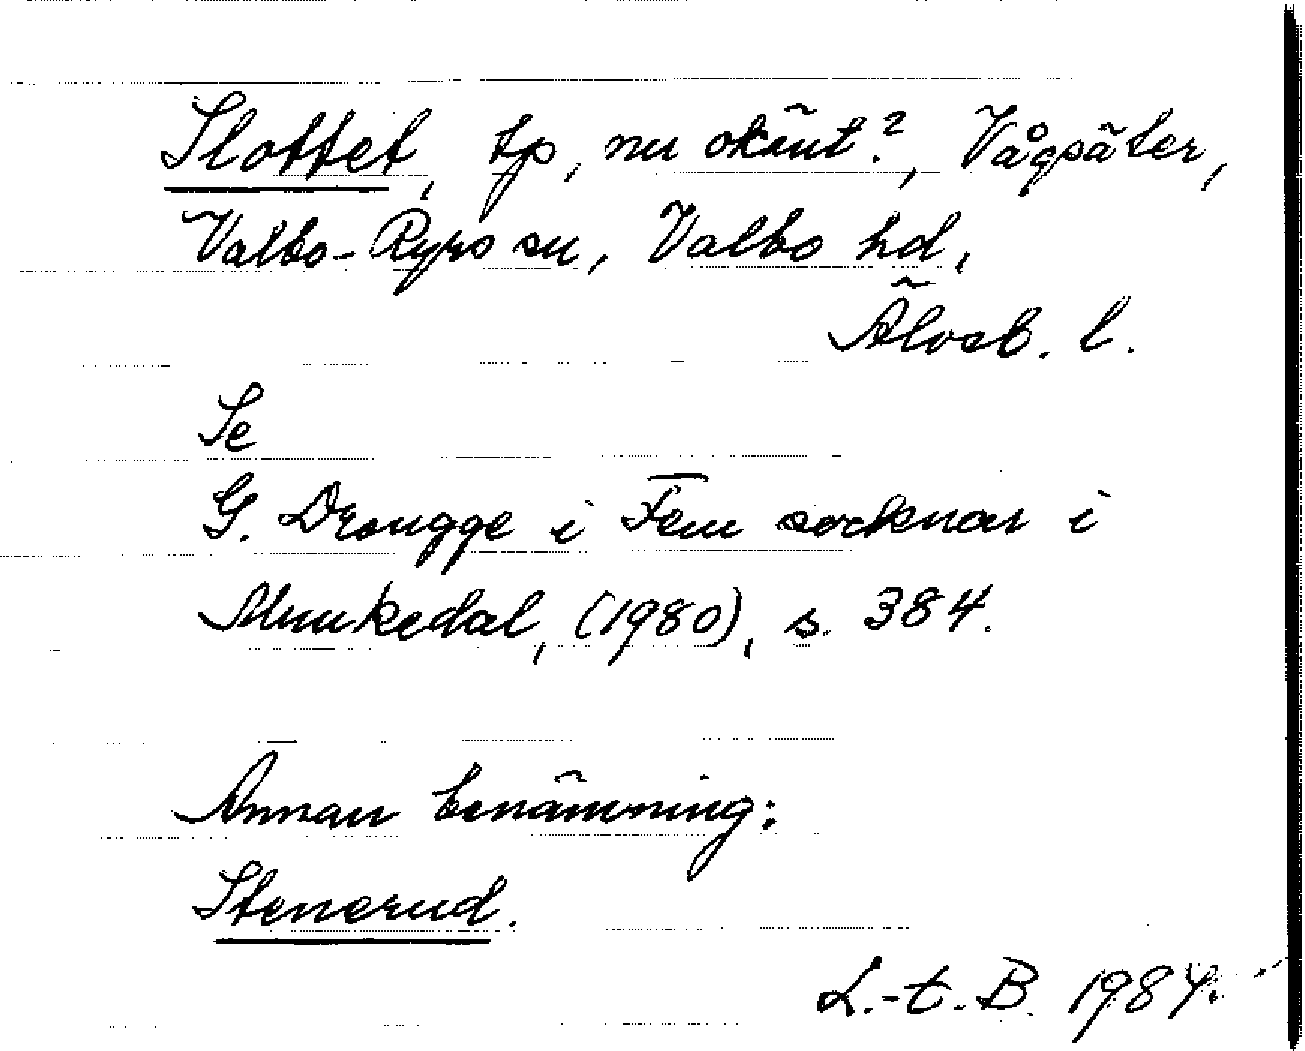 Slottet, tp, nu okänt?, Vågsäter,
Valbo-Ryrs sn, Valbo hd,
Älvsb. l.
Se
G. Drougge i Fem socknar i
Munkedal, (1980), s. 384.
Annan benämning:
Stenerud.
L.-t. B. 1984.